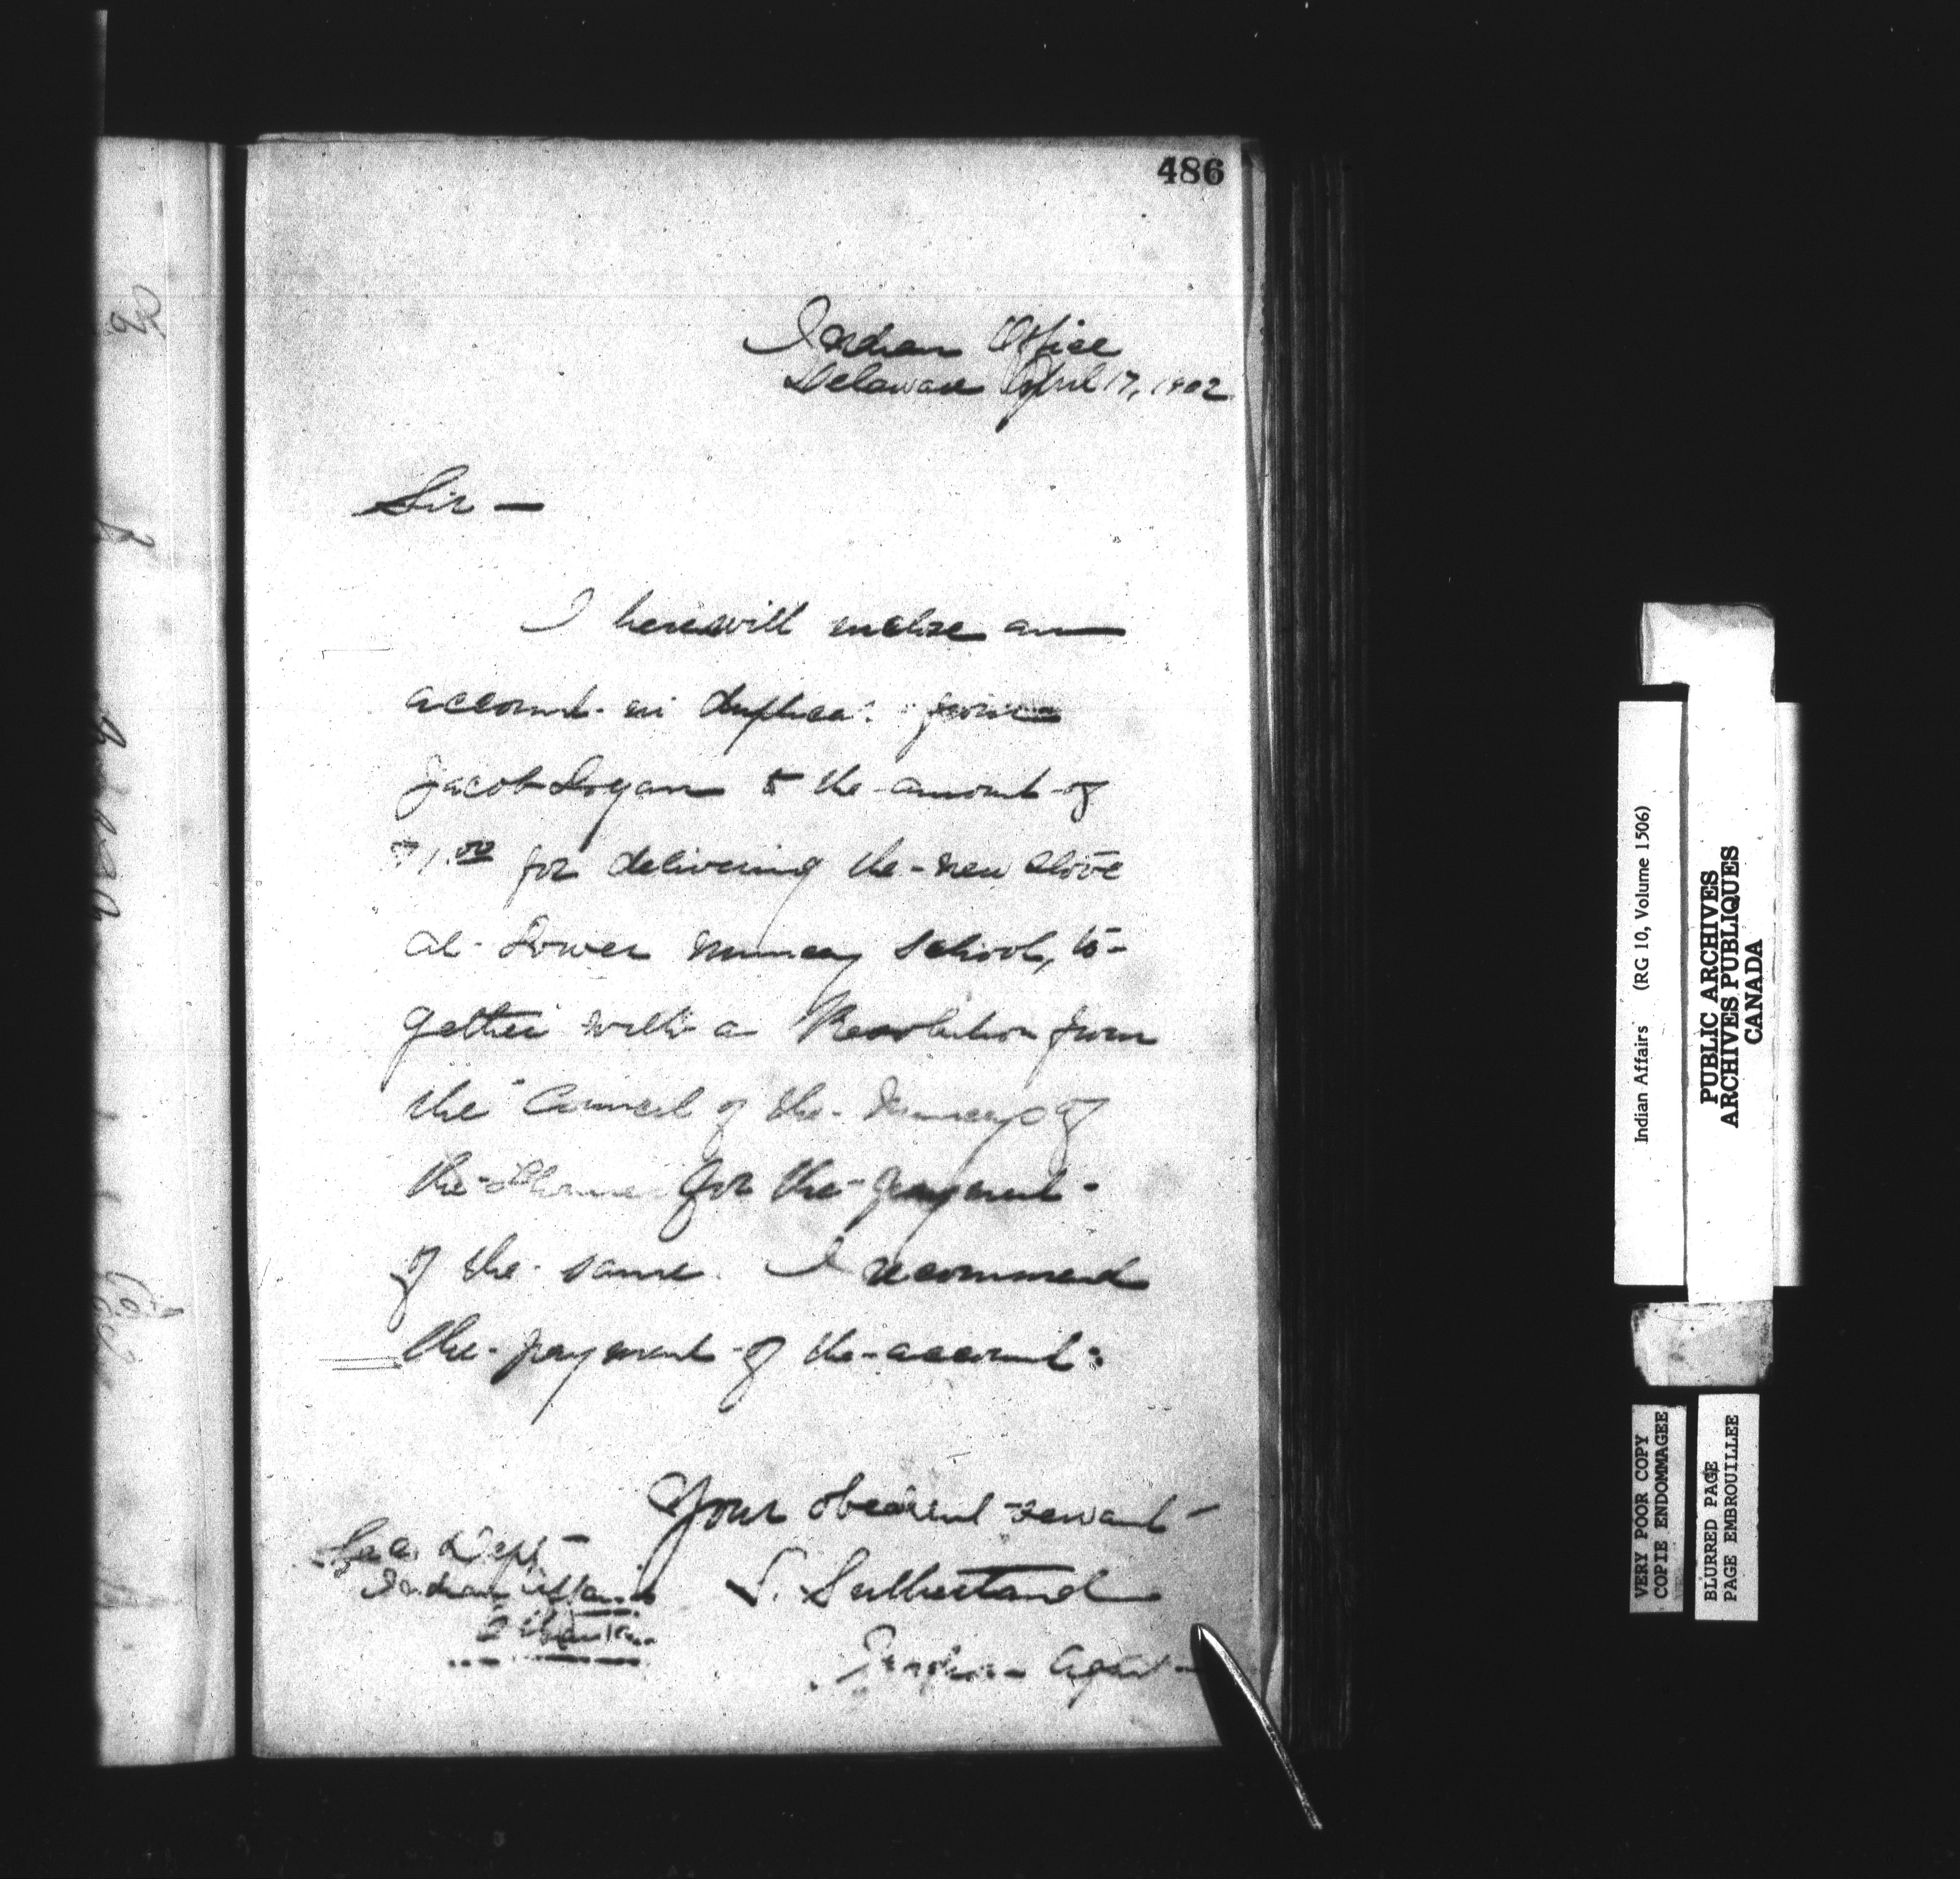 486
Indian Office
Delaware April 17, 1902
Sir —
I herewith enclose an
account in duplica. from
Jacob Logan to the amount of
$1.00 for delivering the new stove
at Lower Muncey School, to-
gether with a Resolution from
the Council of the Munceys of
the Thames for the payment
of the same. I recommend
the payment of the account.
Your obedient servant
S. Sutherland
Indian Agent
Sec. Dept
Indian Affairs
Ottawa
Indian Affairs (RG 10, Volume 1506)
PUBLIC ARCHIVES
ARCHIVES PUBLIQUES
CANADA
VERY POOR COPY
COPIE ENDOMMAGEE
BLURRED PAGE
PAGE EMBROUILLEE